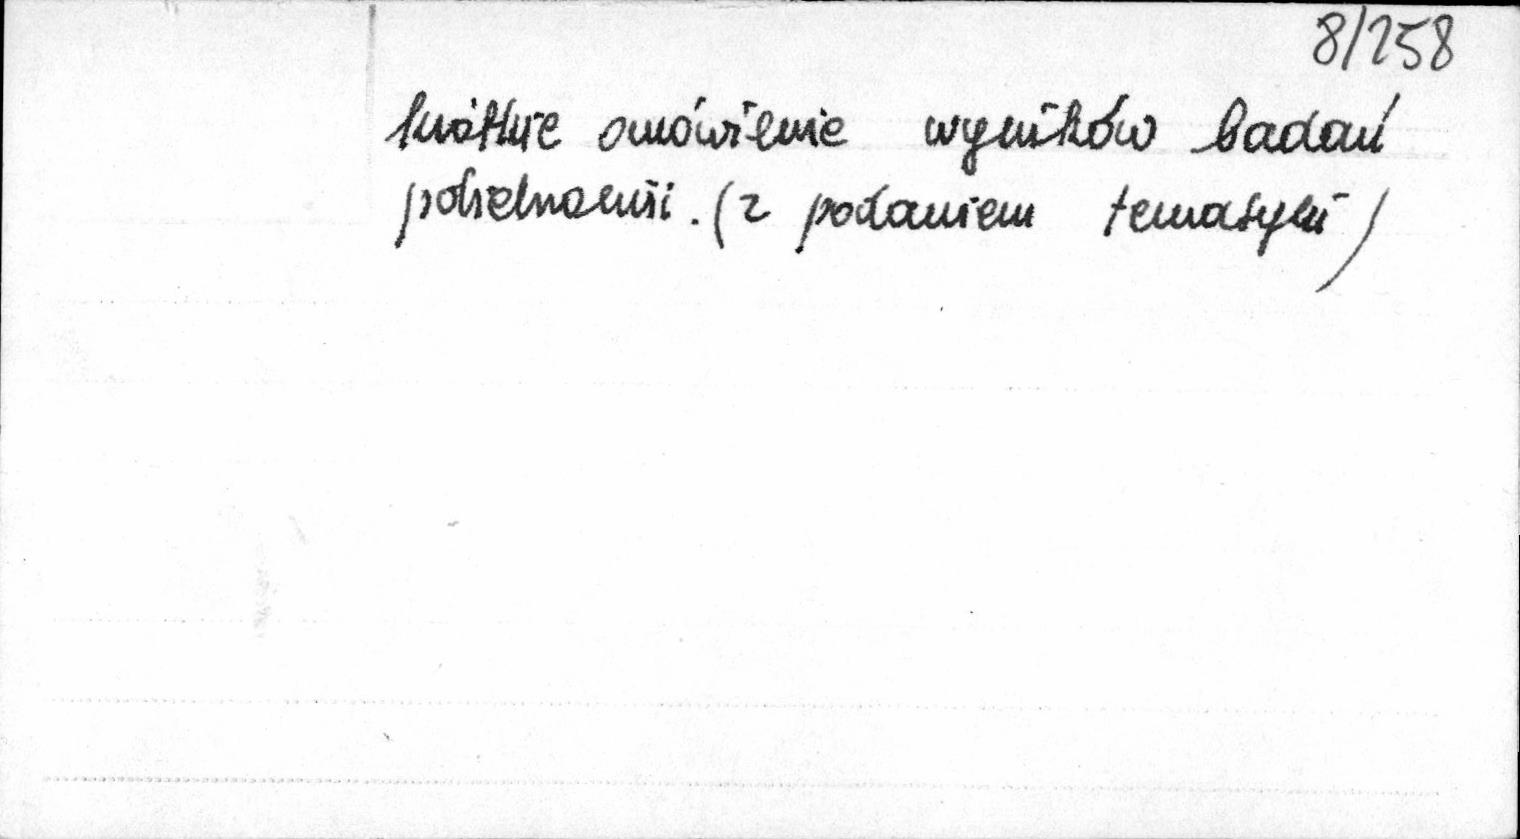 8/258
krótkie omówienie wyników badań
(z podaniem tematyki)